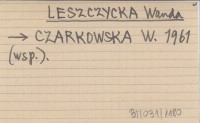 LESZCZYCKA Wanda
→ CZARKOWSKA W. 1961
(wsp.).